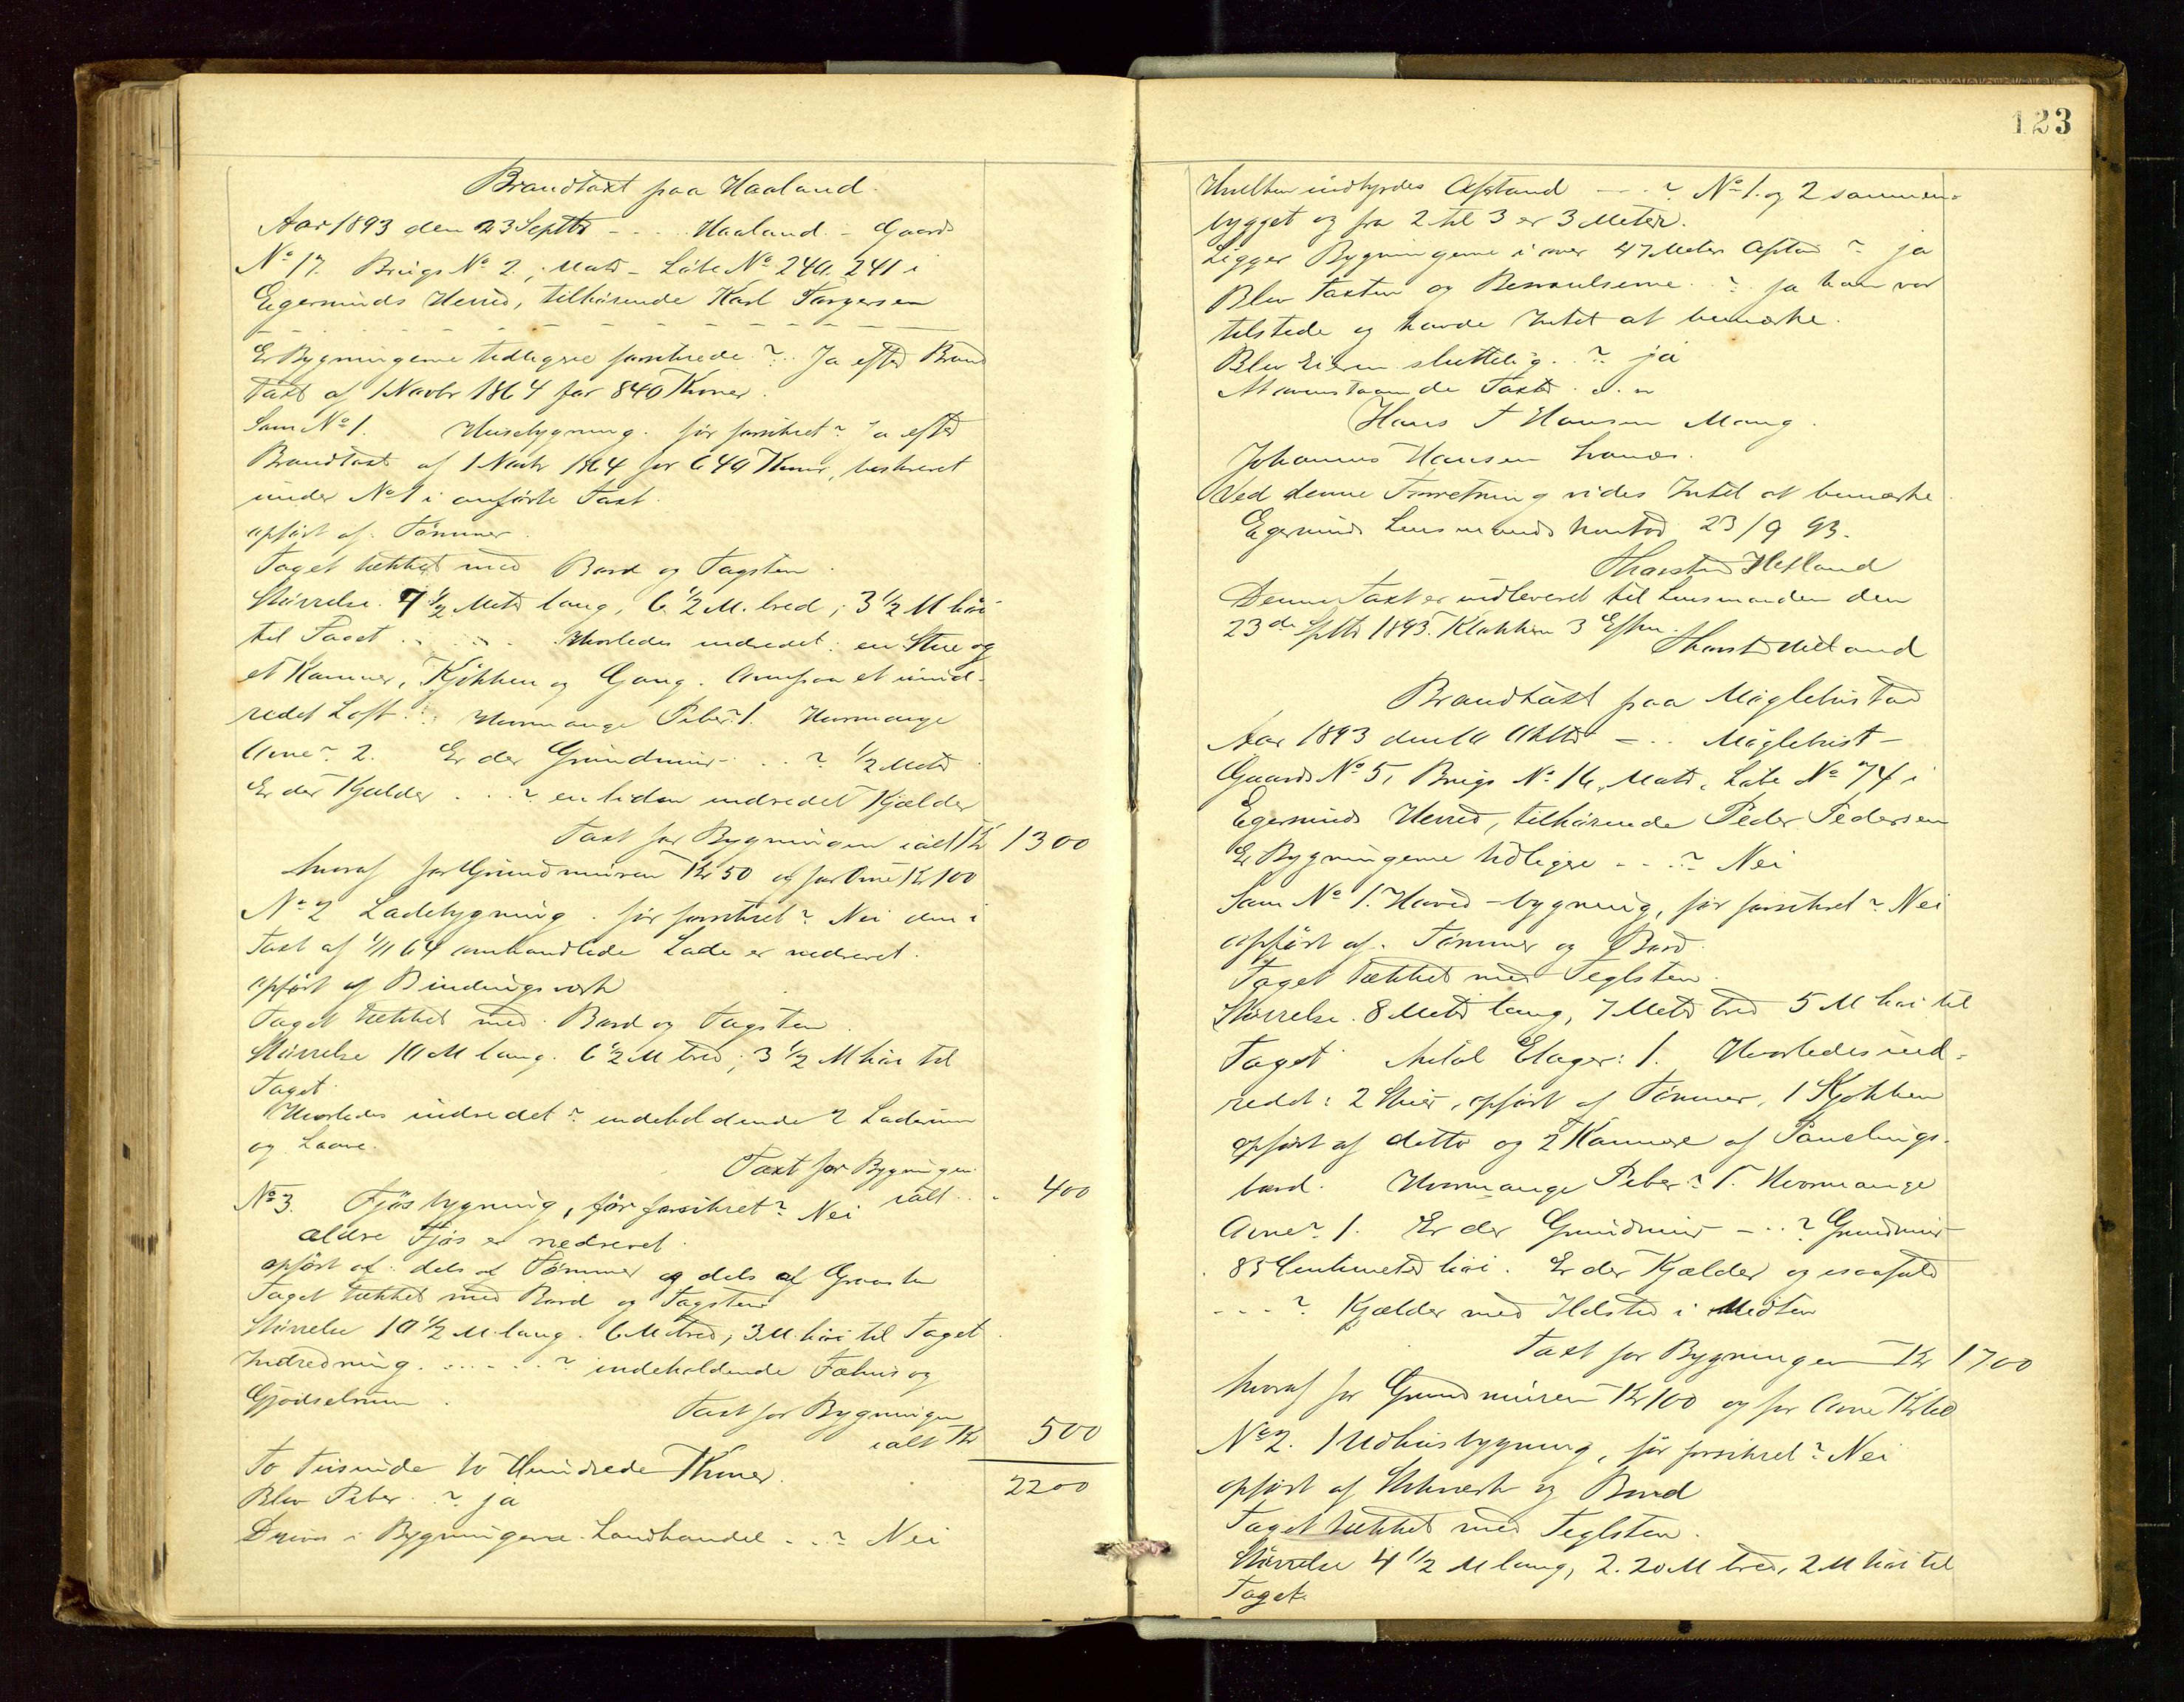 Brandtaxt paa Haaland.
Aar 1893 den 23 Septbr - - - Haaland - Gaards
No 17. Brugs No 2, Matr - Løbe No 240. 241 i
Egersunds Herred, tilhørende Karl Torgersen
Er Bygningerne tidligere forsikrede? .. Ja efter Brand
taxt af 1 Novbr 1864 for 840 Kroner.
Som No 1. Husebygning. før forsikret? Ja efter
Brandtaxt af 1 Novbr 1864 for 640 Kroner, beskrevet
under No 1 i anførte Taxt.
opført af. Tømmer.
Taget tækket med Bord og Tagsten.
Størrelse. 7 1/2 Metr lang, 6 1/2 M. bred, 3 1/2 M høi
til Taget . . . . . Hvorledes indredet: en Stue og
et Kammer, Kjøkken og Gang. Ovenpaa et uind-
redet Loft. Hvormange Piber? 1. Hvormange
Ovne? 2. Er der Grundmur - . . ? 1/2 Metr
Er der Kjælder . . . ? en liden indredet Kjælder
Taxt for Bygningen ialt Kr 1300
hvoraf for Grundmuren Kr 50 og for Ovne Kr 100
No 2 Ladebygning. før forsikret? Nei den i
Taxt af 1/11 64 omhandlede Lade er nedrevet.
opført af Bindingsværk
Taget tækket med. Bord og Tagsten.
Størrelse 10 M lang. 6 1/2 M bred, 3 1/2 M høi til
Taget.
Hvorledes indredet? indeholdende 2 Laderum
og Laave.
Taxt for Bygningen
ialt . . . 400
No 3. Fjøsbygning, før forsikret? Nei
ældre Fjøs er nedrevet.
opført af. dels af Tømmer og dels af Graasten
Taget tækket med Bord og Tagsten
Størrelse 10 1/2 M. lang. 6 M bred, 3 M. høi til Taget.
Indredning. . . . . . . ? indeholdende Fæhus og
Gjødselrum.
Taxt for Bygningen
ialt Kr 500
To Tusinde to Hundrede Kroner. 2200
Blev Piber. . ? ja
Drives i Bygningerne Landhandel . . . ? Nei
123
Hvilken indbyrdes Afstand - - - ? No 1. og 2 sammen-
bygget og fra 2 til 3 er 3 Meter.
Ligger Bygningerne i mer 47 Meter Afstand ? ja
Blev Taxten og Besvarelserne . . ? Ja han var
tilstede og havde Intet at bemærke.
Blev Eieren sluttelig. . ? ja
Ovenstaaende Taxt
Hans T Hansen Maug.
Johannes Hansen
Ved denne Forretning vides Intet at bemærke.
Egersunds Lensmandskontor 23/9 93.
Thorsten Hetland
Denne Taxt er indleveret til Lensmanden den
23de Septbr 1893. Klokken 3 Efterm.
Thorst Hetland
Brandtaxt paa Møglebustad
Aar 1893 den 10 Oktbr - . . Møglebust -
Gaards No 5, Brugs No 16, Matr, Løbe No 74 i
Egersunds Herred, tilhørende Peder Pedersen
Er Bygningerne tidligere - - - ? Nei
Som No 1. Hoved-bygning, før forsikret? Nei
opført af. Tømmer og Bord.
Taget tækket med Teglsten.
Størrelse. 8 Metr lang, 7 Metr bred 5 M høi til
Taget. Antal Etager: 1. Hvorledes ind-
redet: 2 Stuer, opført af Tømmer, 1 Kjøkken
opført af ditto og 2 Kammere af Panelings-
bord. Hvormange Piber? 1. Hvormange
Ovne? 1. Er der Grundmur - . . ? Grundmur
85 Centimeter høi. Er der Kjælder og isaafald
- - - ? Kjælder med Ildsted i Midten
Taxt for Bygningen Kr 1700
hvoraf for Grundmuren Kr 100 og for Ovne Kr
No 2. 1 Udhusbygning, før forsikret? Nei
opført af Stolværk og Bord
Taget tækket med Teglsten.
Størrelse 4 1/2 M lang, 2.20 M bred, 2 M høi til
Taget.